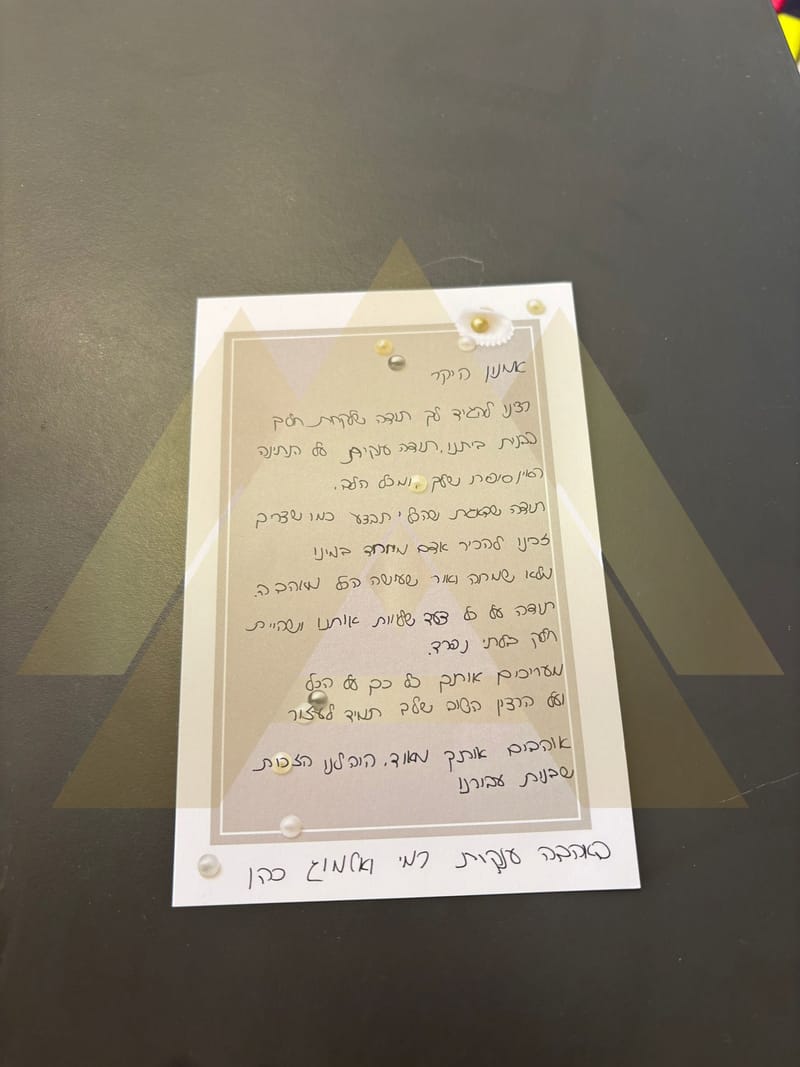 אמנון היקר
רצנו להגיד לך תודה שלקחת חלק
בבנית ביתנו. תודה ענקית על הנתינה
האינסופית שלך ומכל הלב.
תודה שדאגת שהכל יתבצע כמו שצריך
זכנו להכיר אדם מיוחד במינו
מלא שמחה ואור שעושה הכל מאהבה.
תודה על כל צעד שלווית אותנו ושהיית
חלק בלתי נפרד.
מעריכים אותך כל כך על הכל
ועל הרצון הטוב שלך תמיד לעזור
אוהבים אותך מאוד. היה לנו הזכות
שבנות עבורנו
באהבה ענקית רמי ואלמוג כהן